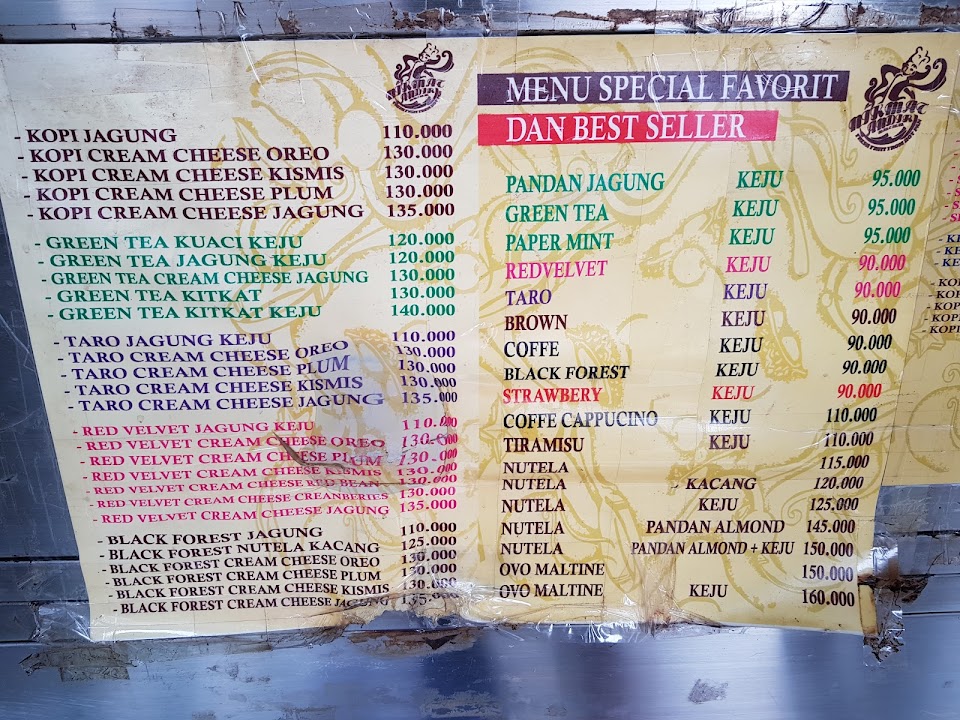 NIKMAT ANDIR
- KOPI JAGUNG 110.000
- KOPI CREAM CHEESE OREO 130.000
- KOPI CREAM CHEESE KISMIS 130.000
- KOPI CREAM CHEESE PLUM 130.000
- KOPI CREAM CHEESE JAGUNG 135.000
- GREEN TEA KUACI KEJU 120.000
- GREEN TEA JAGUNG KEJU 120.000
- GREEN TEA CREAM CHEESE JAGUNG 130.000
- GREEN TEA KITKAT 130.000
- GREEN TEA KITKAT KEJU 140.000
- TARO JAGUNG KEJU 110.000
- TARO CREAM CHEESE OREO 130.000
- TARO CREAM CHEESE PLUM 130.000
- TARO CREAM CHEESE KISMIS 130.000
- TARO CREAM CHEESE JAGUNG 135.000
- RED VELVET JAGUNG KEJU 110.000
- RED VELVET CREAM CHEESE OREO 130.000
- RED VELVET CREAM CHEESE PLUM 130.000
- RED VELVET CREAM CHEESE KISMIS 130.000
- RED VELVET CREAM CHEESE RED BEAN 130.000
- RED VELVET CREAM CHEESE CREANBERIES 130.000
- RED VELVET CREAM CHEESE JAGUNG 135.000
- BLACK FOREST JAGUNG 110.000
- BLACK FOREST NUTELA KACANG 125.000
- BLACK FOREST CREAM CHEESE OREO 130.000
- BLACK FOREST CREAM CHEESE PLUM 130.000
- BLACK FOREST CREAM CHEESE KISMIS 130.000
- BLACK FOREST CREAM CHEESE JAGUNG 135.000
MENU SPECIAL FAVORIT
DAN BEST SELLER
NIKMAT ANDIR
PANDAN JAGUNG KEJU 95.000
GREEN TEA KEJU 95.000
PAPER MINT KEJU 95.000
REDVELVET KEJU 90.000
TARO KEJU 90.000
BROWN KEJU 90.000
COFFE KEJU 90.000
BLACK FOREST KEJU 90.000
STRAWBERY KEJU 90.000
COFFE CAPPUCINO KEJU 110.000
TIRAMISU KEJU 110.000
NUTELA 115.000
NUTELA KACANG 120.000
NUTELA KEJU 125.000
NUTELA PANDAN ALMOND 145.000
NUTELA PANDAN ALMOND + KEJU 150.000
OVO MALTINE 150.000
OVO MALTINE KEJU 160.000